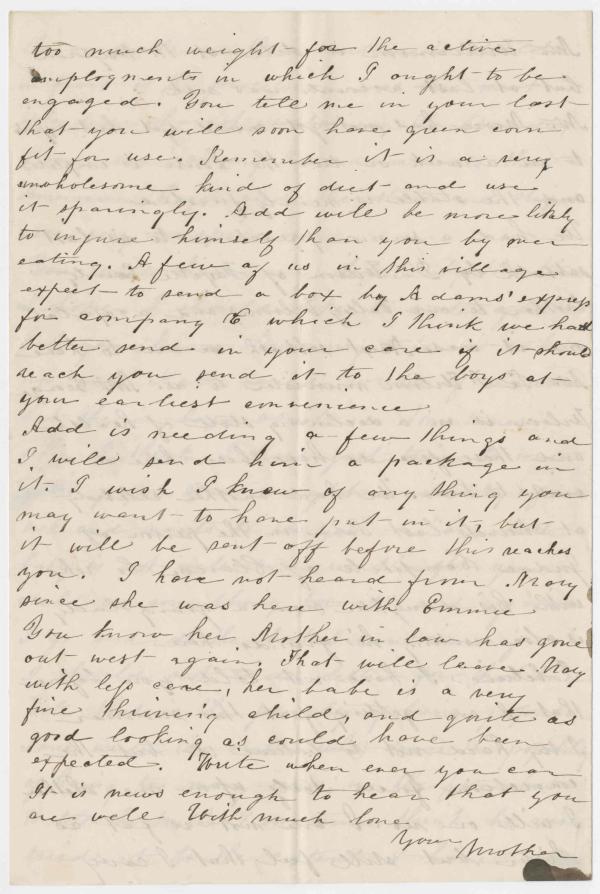 too much weight for the active
employments in which I ought to be
engaged. You tell me in your last
that you will soon have green corn
fit for use. Remember it is a very
unwholesome kind of diet and use
it sparingly. Add will be more likely
to injure himself than you by over
eating. A few of us in this village
expect to send a box by Adams' express
for company C which I think we had
better send in your care if it should
reach you send it to the boys at
your earliest convenience
Add is needing a few things and
I will send him a package in
it. I wish I knew of any thing you
may want to have put in it, but
it will be sent off before this reaches
you. I have not heard from Mary
since she was here with Emmie
You know her Mother in law has gone
out west again. That will leave Mary
with less care, her babe is a very
fine thriving child, and quite as
good looking as could have been
expected. Write when ever you can
It is news enough to hear that you
are well With much love
Your Mother